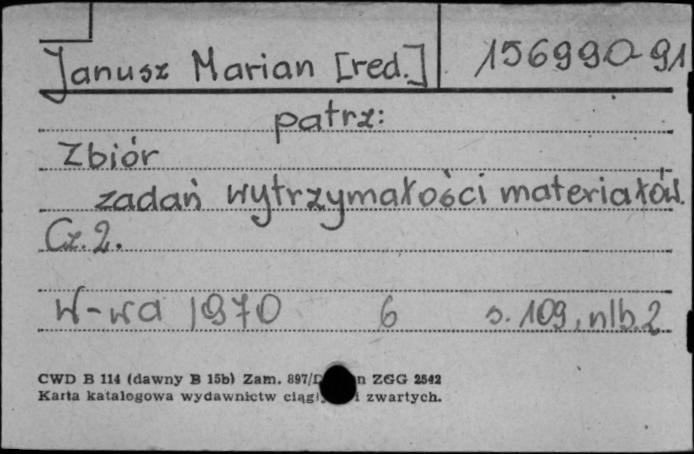 Janusz Marian [red.] 156990-91
patrz:
Zbiór
zadań wytrzymałości materiałów.
Cz. 2.
W-wa 1970 6 s. 109, nlb. 2
CWD B 114 (dawny B 15b) Zam. 897/ ZGG 2542
Karta katalogowa wydawnictw i zwartych.